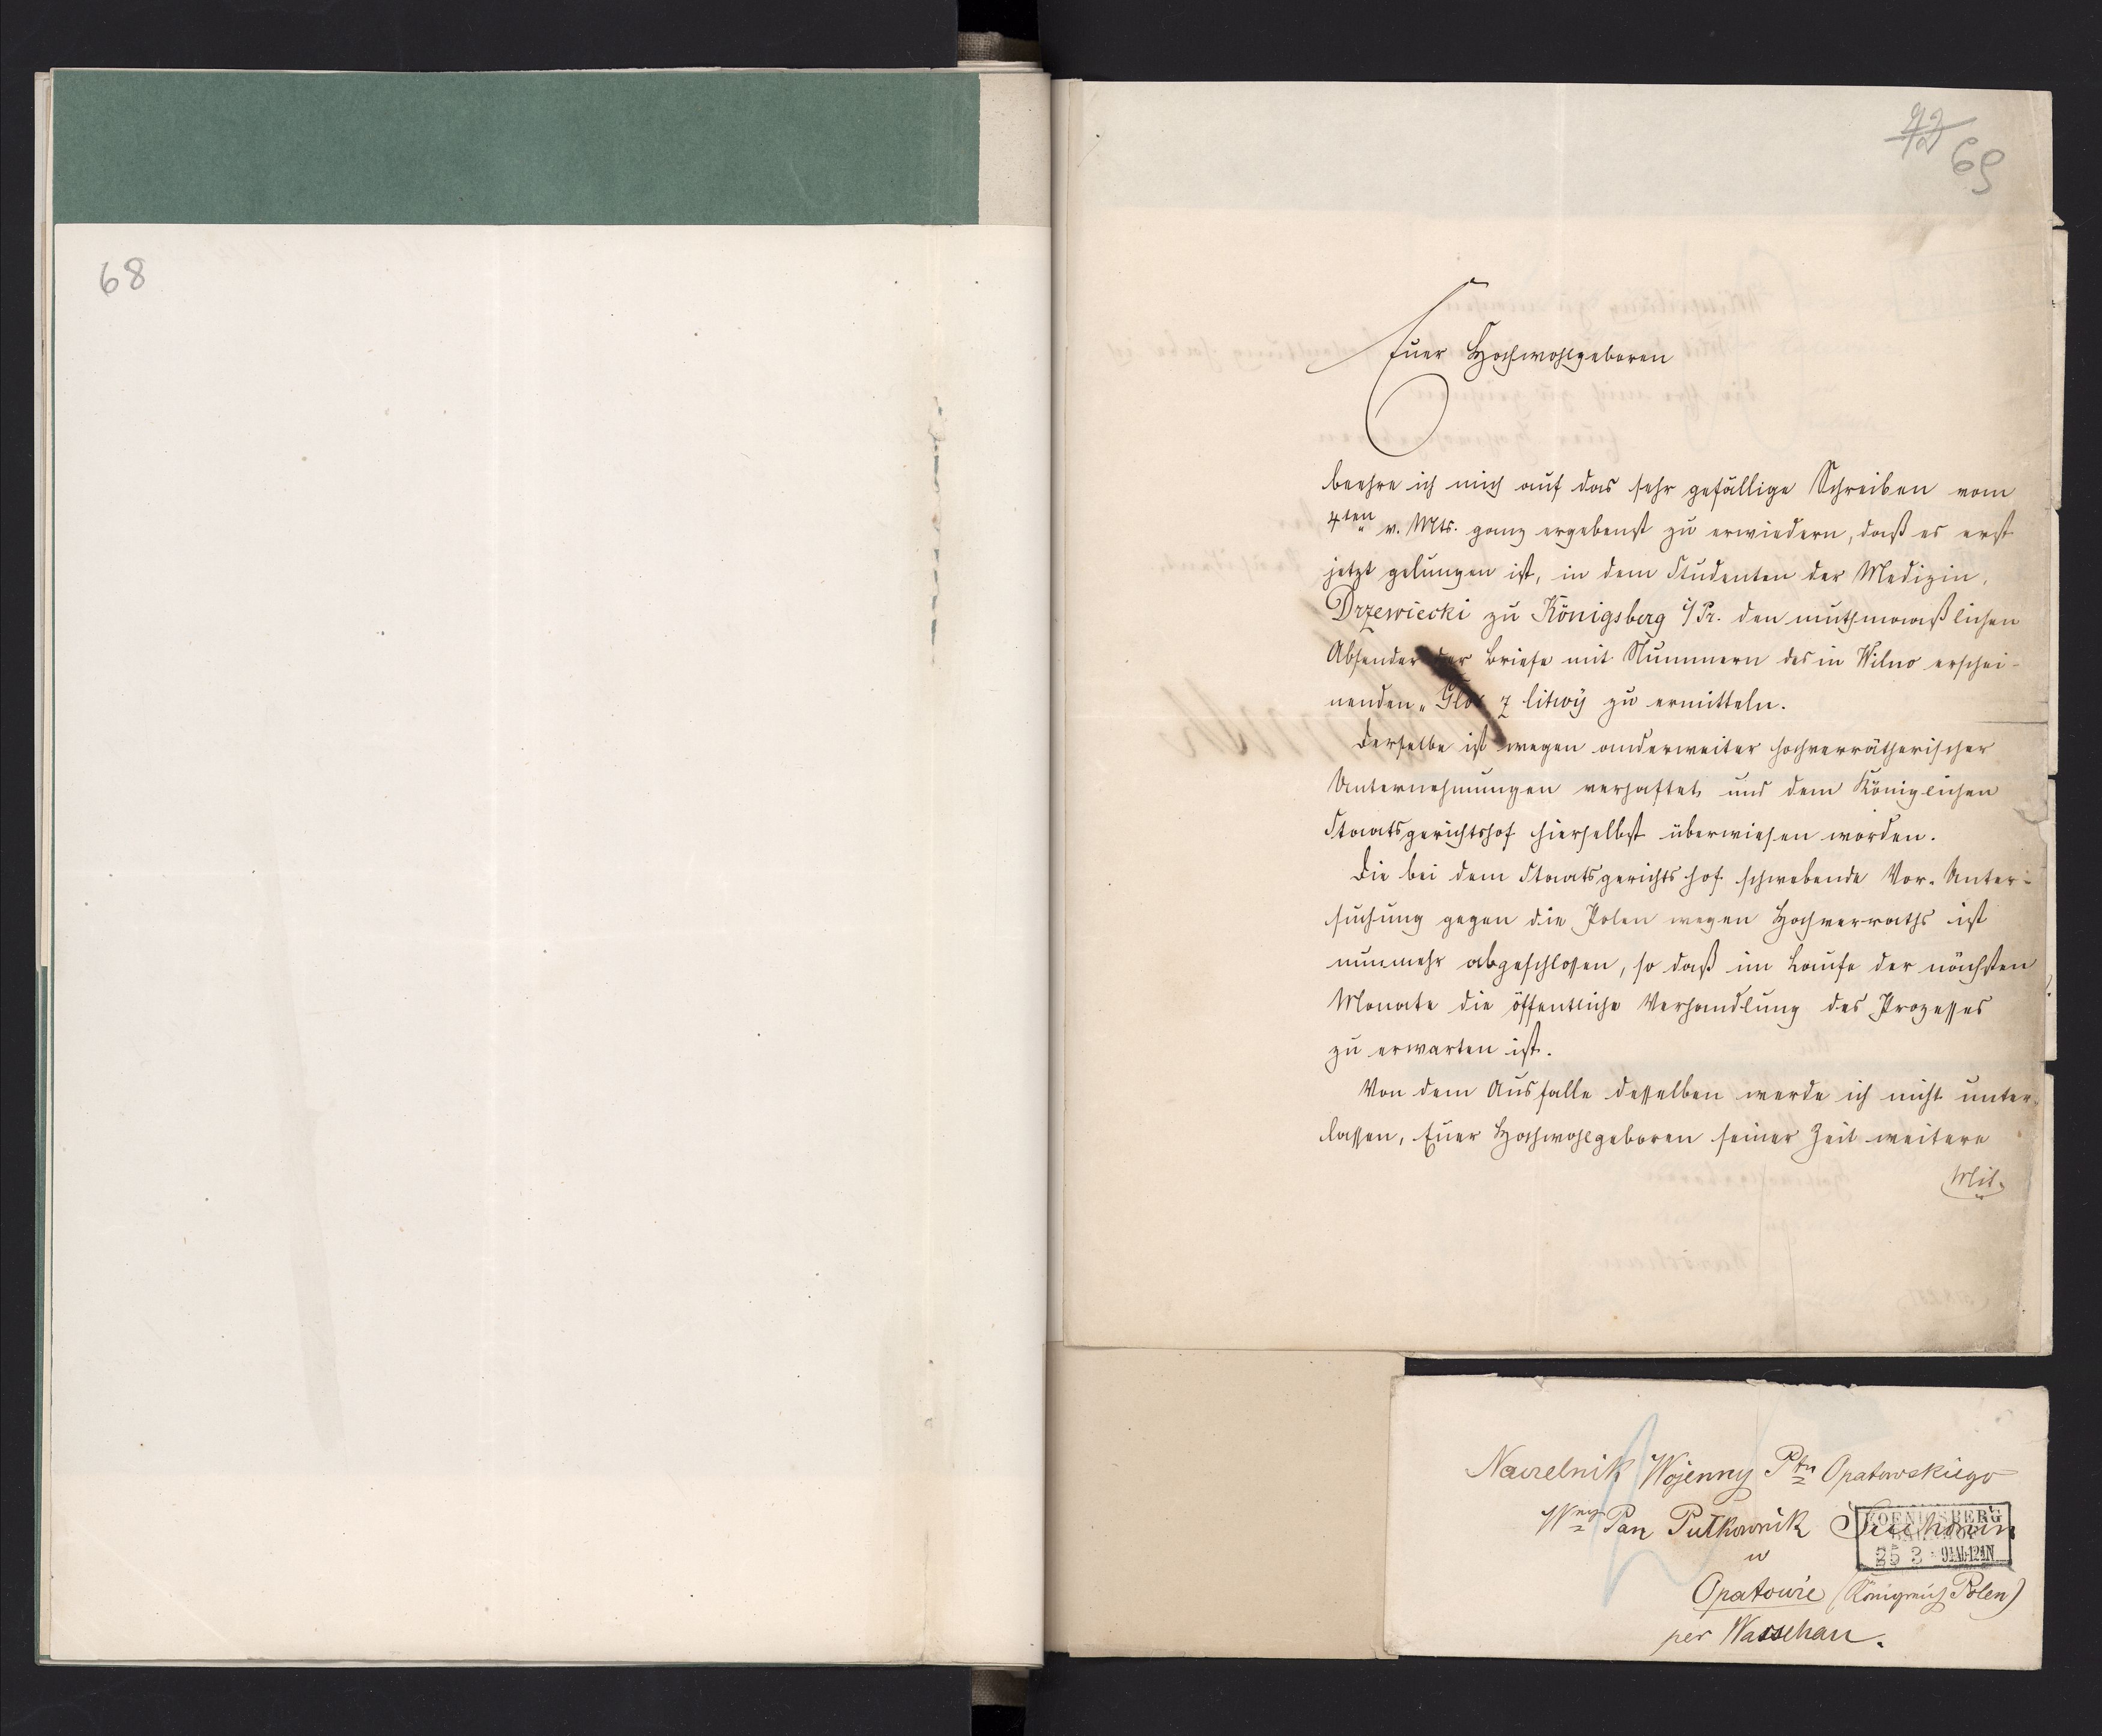 68
42
69
Euer Hochwohlgeboren
beehre ich mich auf das sehr gefällige Schreiben vom
4ten v. Mts. ganz ergebenst zu erwiedern, daß es erst
jetzt gelungen ist, in dem Studenten der Medizin,
Drzewiecki zu Königsberg i/Pr. den muthmaaßlichen
Absender der Briefe mit Nummern des in Wilno erschei-
nenden „Glos z litwÿ zu ermitteln.
Derselbe ist wegen anderweiter hochverrätherischer
Unternehmungen verhaftet und dem Königlichen
Staatsgerichtshof hierselbst überwiesen worden.
Die bei dem Staatsgerichtshof schwebende Vor-Unter-
suchung gegen die Polen wegen Hochverraths ist
nunmehr abgeschlossen, so daß im Laufe der nächsten
Monate die öffentliche Verhandlung des Prozesses
zu erwarten ist.
Von dem Ausfalle desselben werde ich nicht unter-
lassen, Euer Hochwohlgeboren seiner Zeit weitere
Mit-
Naczelnik Wojenny Ptu Opatowskiego
Wny Pan Pułkownik
KOENIGSBERG
BAHNHOF
25 3 9¼U-12¼N
w
Opatowie (Königreich Polen)
per Warschau.